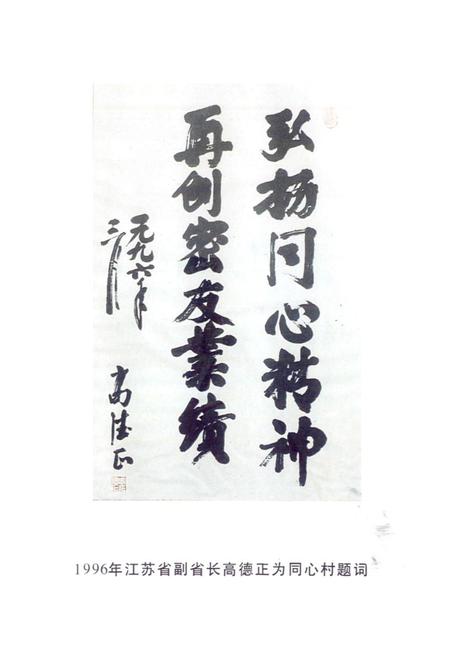 弘扬同心精神
再创密友業績
一九九六年
三月
高德正
1996年江苏省副省长高德正为同心村题词